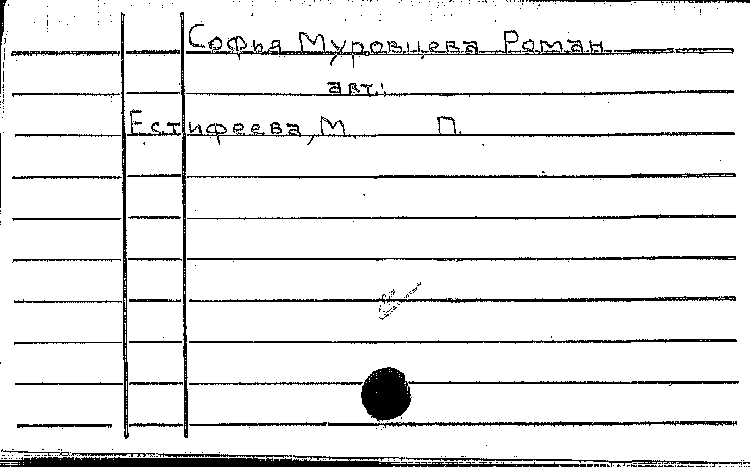 Софья Муровцева Роман
авт.:
Естифеева, М. П.